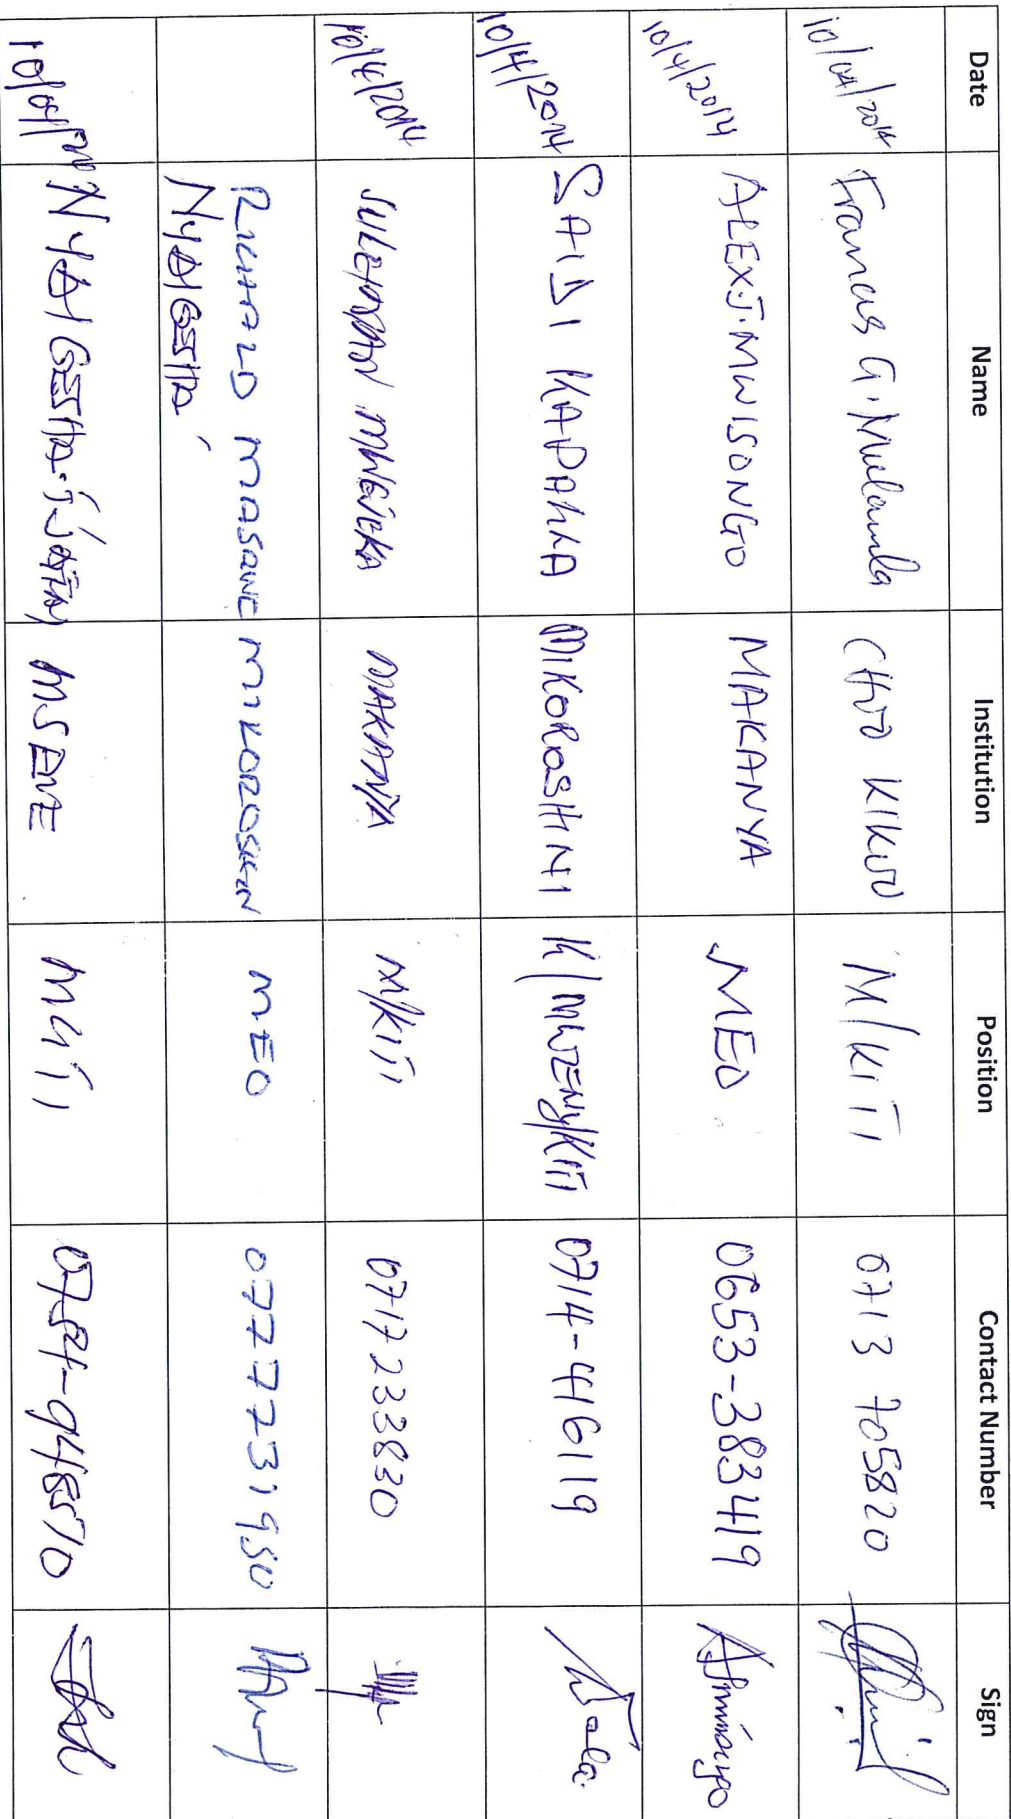 Date Name Institution Position Contact Number Sign
10/04/2014 Francis G. Mulamula CHUO KIKUU M/KITI 0713 705820
10/4/2014 ALEX.J.MWISONGO MAKANYA MEO 0653-383419
10/4/2014 SAIDI KAPAMA MIKOROSHINI K/MWENYEKITI 0714-416119
10/4/2014 SULEIMAN MAKANYA M/KITI 0717 233830
RICHARD MASAWE MIKOROSHIN MEO 0777731950
10/04/ MSEWE 0754-948510